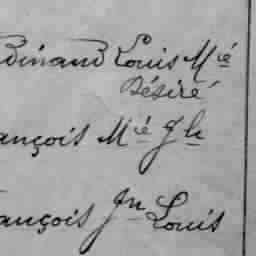 dinand Louis Mié
Désiré
ançois Mié Jh
ançois Jn Louis